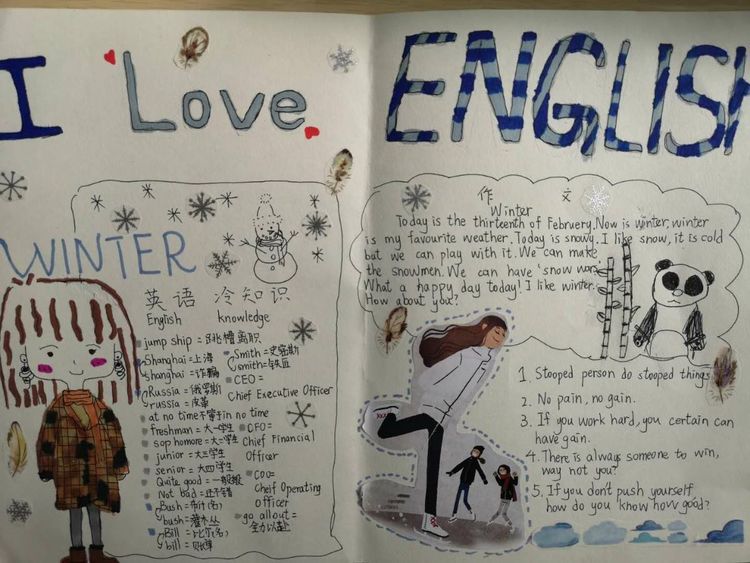 I Love
ENGLISH
WINTER
英语 冷知识
English knowledge
jump ship = 跳槽 离职
Shanghai = 上海
shanghai = 诈骗
Russia = 俄罗斯
russia = 皮革
at no time 不等于 in no time
freshman = 大一学生
sop homore = 大二学生
junior = 大三学生
senior = 大四学生
Quite good = 一般般
Not bad = 还不错
Bush = 布什(名)
bush = 灌木丛
Bill = 比尔(名)
bill = 账单
Smith = 史密斯
smith = 铁匠
CEO =
Chief Executive Officer
CFO =
Chief Financial
Officer
COO =
Cheif Operating
Officer
go all out =
全力以赴
作 文
Winter
Today is the thirteenth of February. Now is winter, winter
is my favourite weather. Today is snowy. I like snow, it is cold
but we can play with it. We can make
the snowmen. We can have snow war.
What a happy day today! I like winter.
How about you?
1. Stooped person do stooped things
2. No pain, no gain.
3. If you work hard, you certain can
have gain.
4. There is always someone to win,
way not you?
5. If you don't push yourself,
how do you know how good?